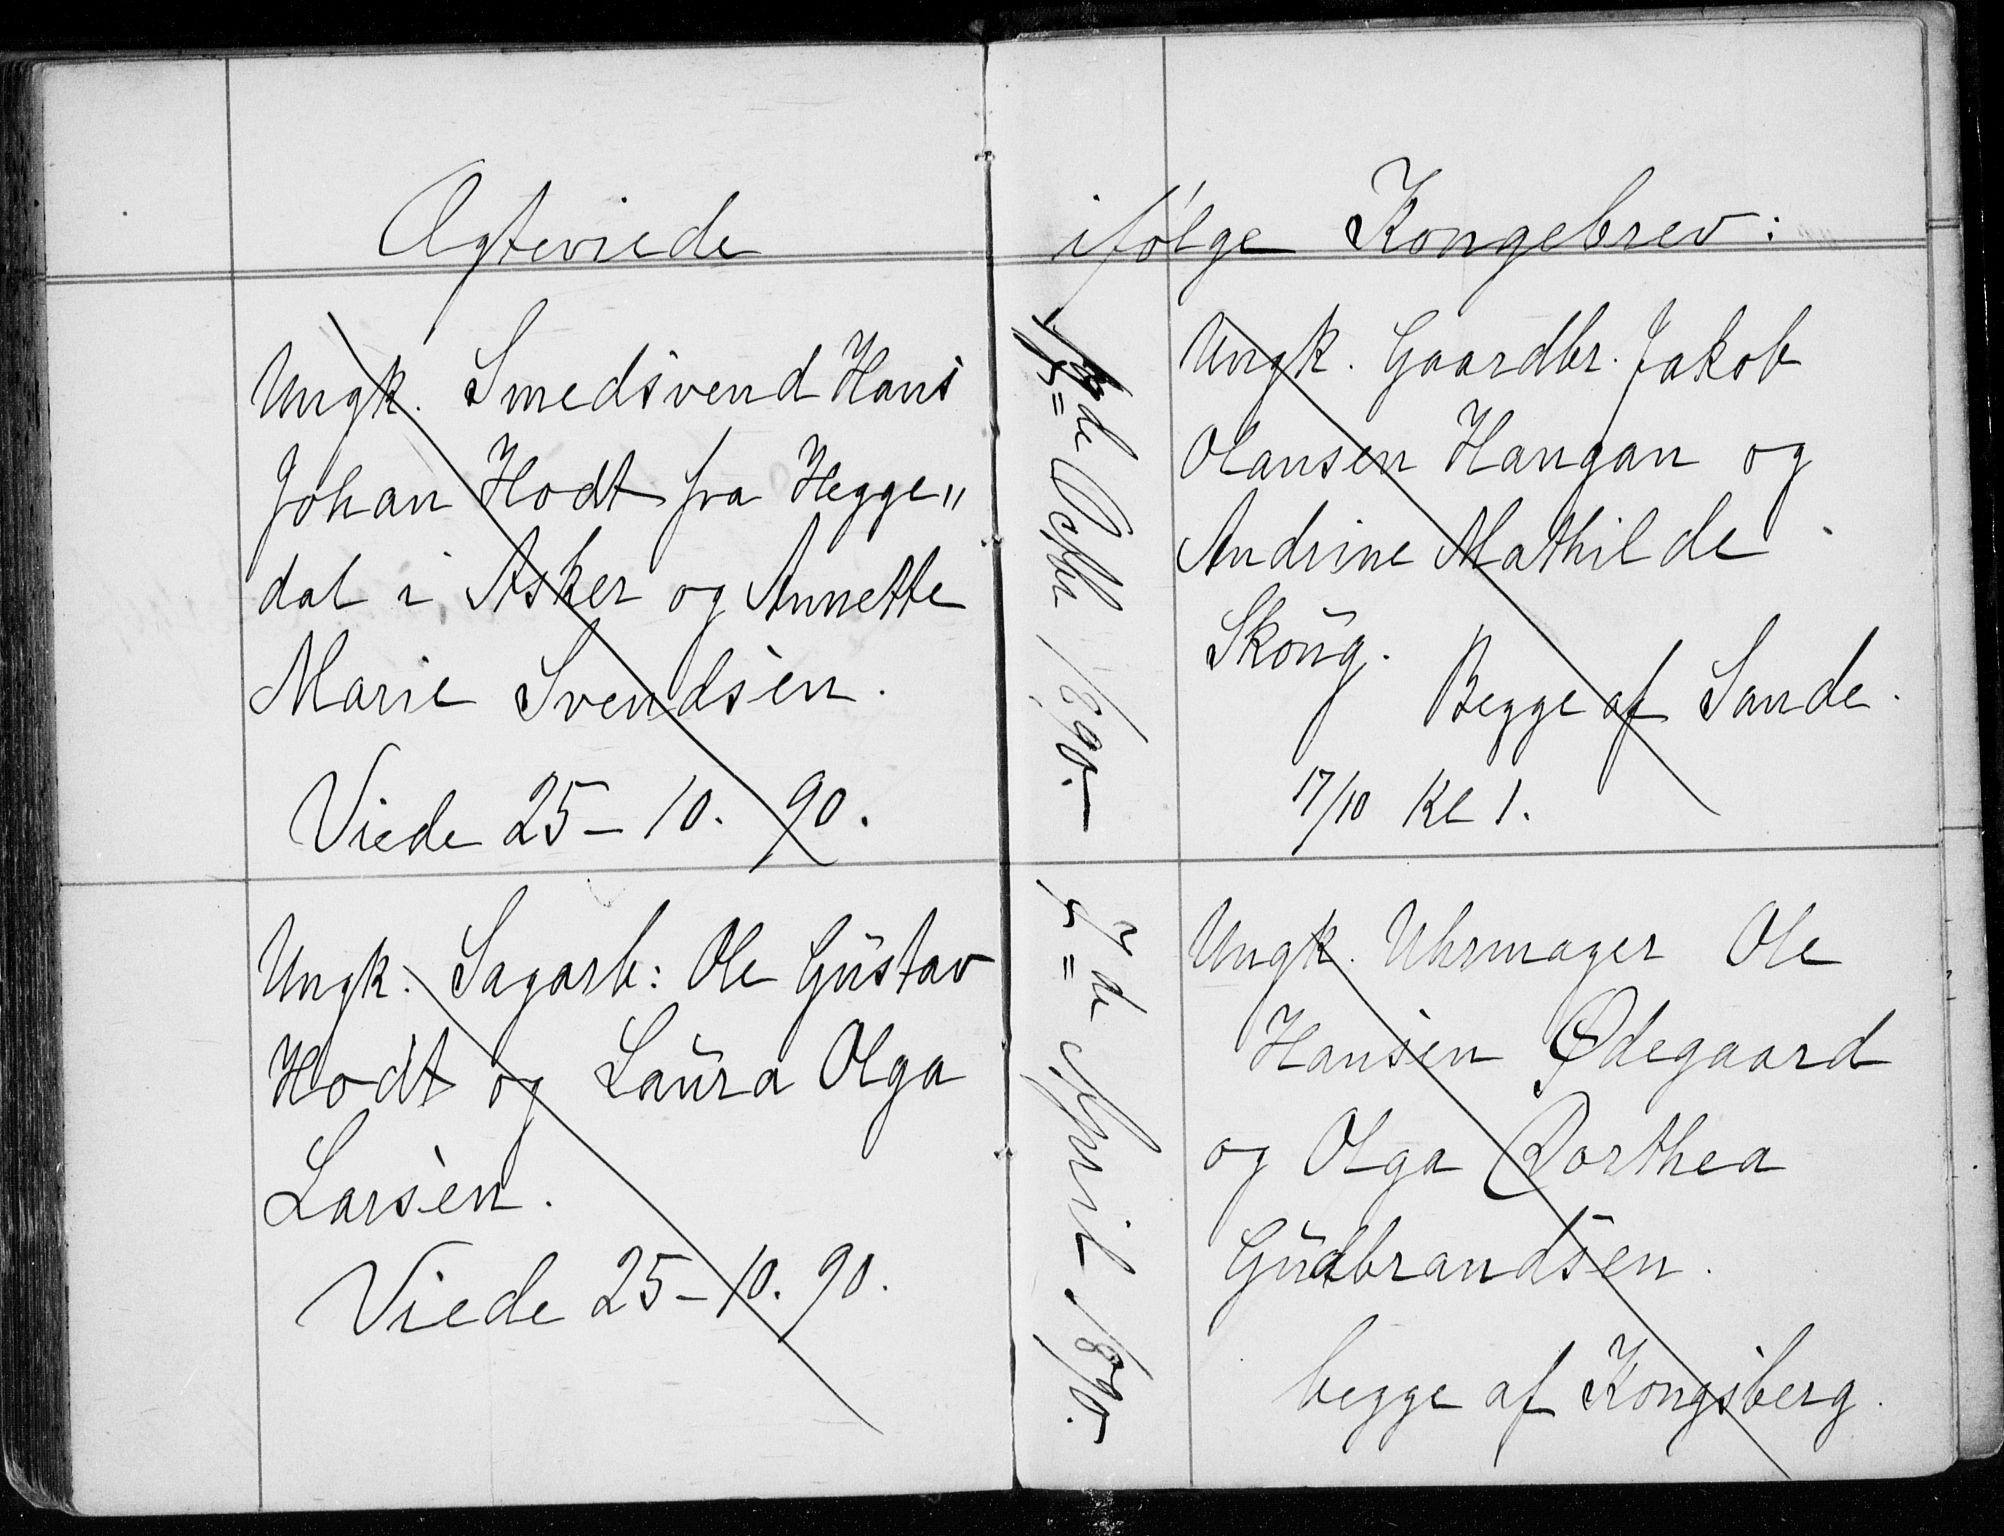 Ægteviede
Ungk. Smedsvend Hans
Johan Hodt fra Hegge"
dal i Asker og Annette
Marie Svendsen.
Viede 25-10. 90.
Ungk. Sagarb: Ole Gustav
Hodt og Laura Olga
Larsen.
Viede 25-10. 90.
ifølge Kongebrev:
de Octbr 1890.
Ungk. Gaardbr. Jakob
Olansen Hangan og
Andrine Mathilde
Skoug.
Begge af Sande.
17/10 Kl 1.
de April 1890.
Ungk. Uhrmager Ole
Hansen Ødegaard
og Olga Dorthea
Gudbrandsen.
begge af Kongsberg.